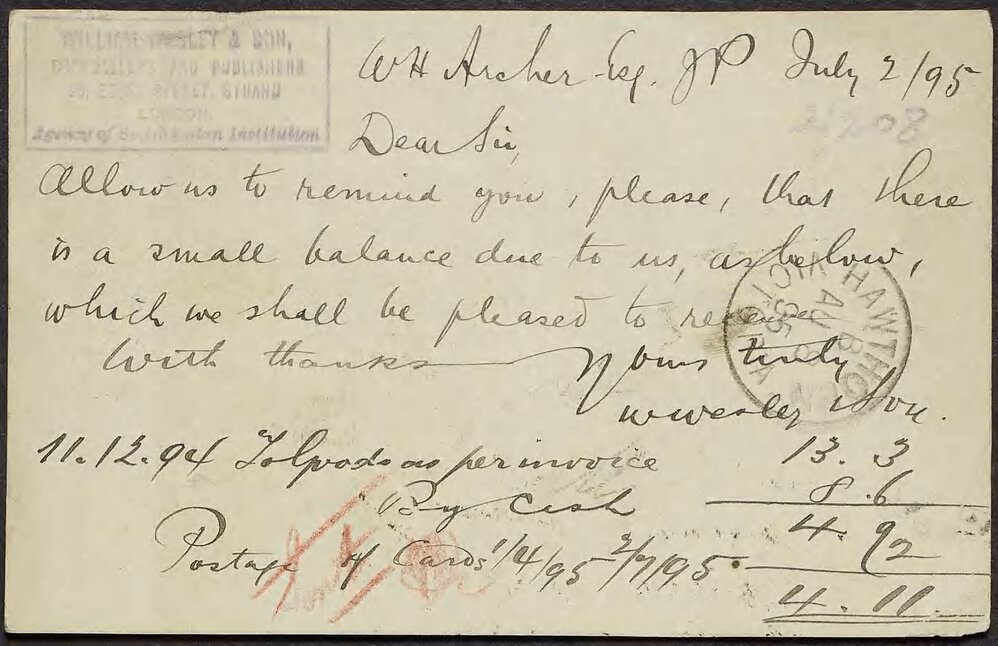 WILLIAM WESLEY & SON,
BOOKSELLERS AND PUBLISHERS
28, ESSEX STREET, STRAND
LONDON.
Agency of Smithsonian Institution
WH Archer Esq. JP July 2/95
Dear Sir,
Allow us to remind you, please, that there
is a small balance due to us, as below,
which we shall be pleased to receive
With thanks Yours truly
W Wesley & Son.
HAWTHORN
AU 8
95
VICTORIA
11.12.94 as per invoice 13.3
By Cash 8.6
4.9
Postage of Cards 1/4/95 2/7/95. 2
4.11